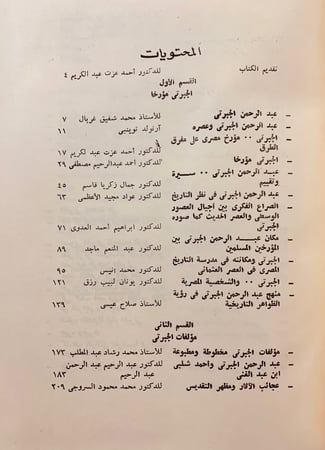 المحتويات
تقديم الكتاب للدكتور أحمد عزت عبد الكريم ٤
القسم الأول
الجبرتى مؤرخا
ـ عبد الرحمن الجبرتى للأستاذ محمد شفيق غربال ٧
ـ عبد الرحمن الجبرتى وعصره آرنولد توينبى ١١
ـ الجبرتى ٠٠ مؤرخ مصرى على مفرق
الطرق للدكتور أحمد عزت عبد الكريم ١٧
ـ الجبرتى مؤرخا للدكتور أحمد عبدالرحيم مصطفى ٢٩
ـ عبد الرحمن الجبرتى ٠٠ سيرة
وتقييم للدكتور جمال زكريا قاسم ٤٥
ـ عبد الرحمن الجبرتى فى نظر التاريخ للدكتور عواد مجيد الأعظمى ٦٣
ـ الصراع الفكرى بين أجيال العصور
الوسطى والعصر الحديث كما صوره
الجبرتى للدكتور ابراهيم أحمد العدوى ٧١
ـ مكان عبد الرحمن الجبرتى بين
المؤرخين المسلمين للدكتور عبد المنعم ماجد ٨٩
ـ الجبرتى ومكانته فى مدرسة التاريخ
المصرى فى العصر العثمانى للدكتور محمد أنيس ٩٥
ـ الجبرتى ٠٠ والشخصية المصرية للدكتور يونان لبيب رزق ١٢١
ـ منهج عبد الرحمن الجبرتى فى رؤية
الظواهر التاريخية للأستاذ صلاح عيسى ١٣٩
القسم الثانى
مؤلفات الجبرتى
ـ مؤلفات الجبرتى مخطوطة ومطبوعة للأستاذ محمد رشاد عبد المطلب ١٧٣
ـ عبد الرحمن الجبرتى وأحمد شلبى للدكتور عبد الرحيم عبد الرحمن
ابن عبد الغنى عبد الرحيم ١٨٣
ـ عجائب الآثار ومظهر التقديس للدكتور محمد محمود السروجى ٢٠٩